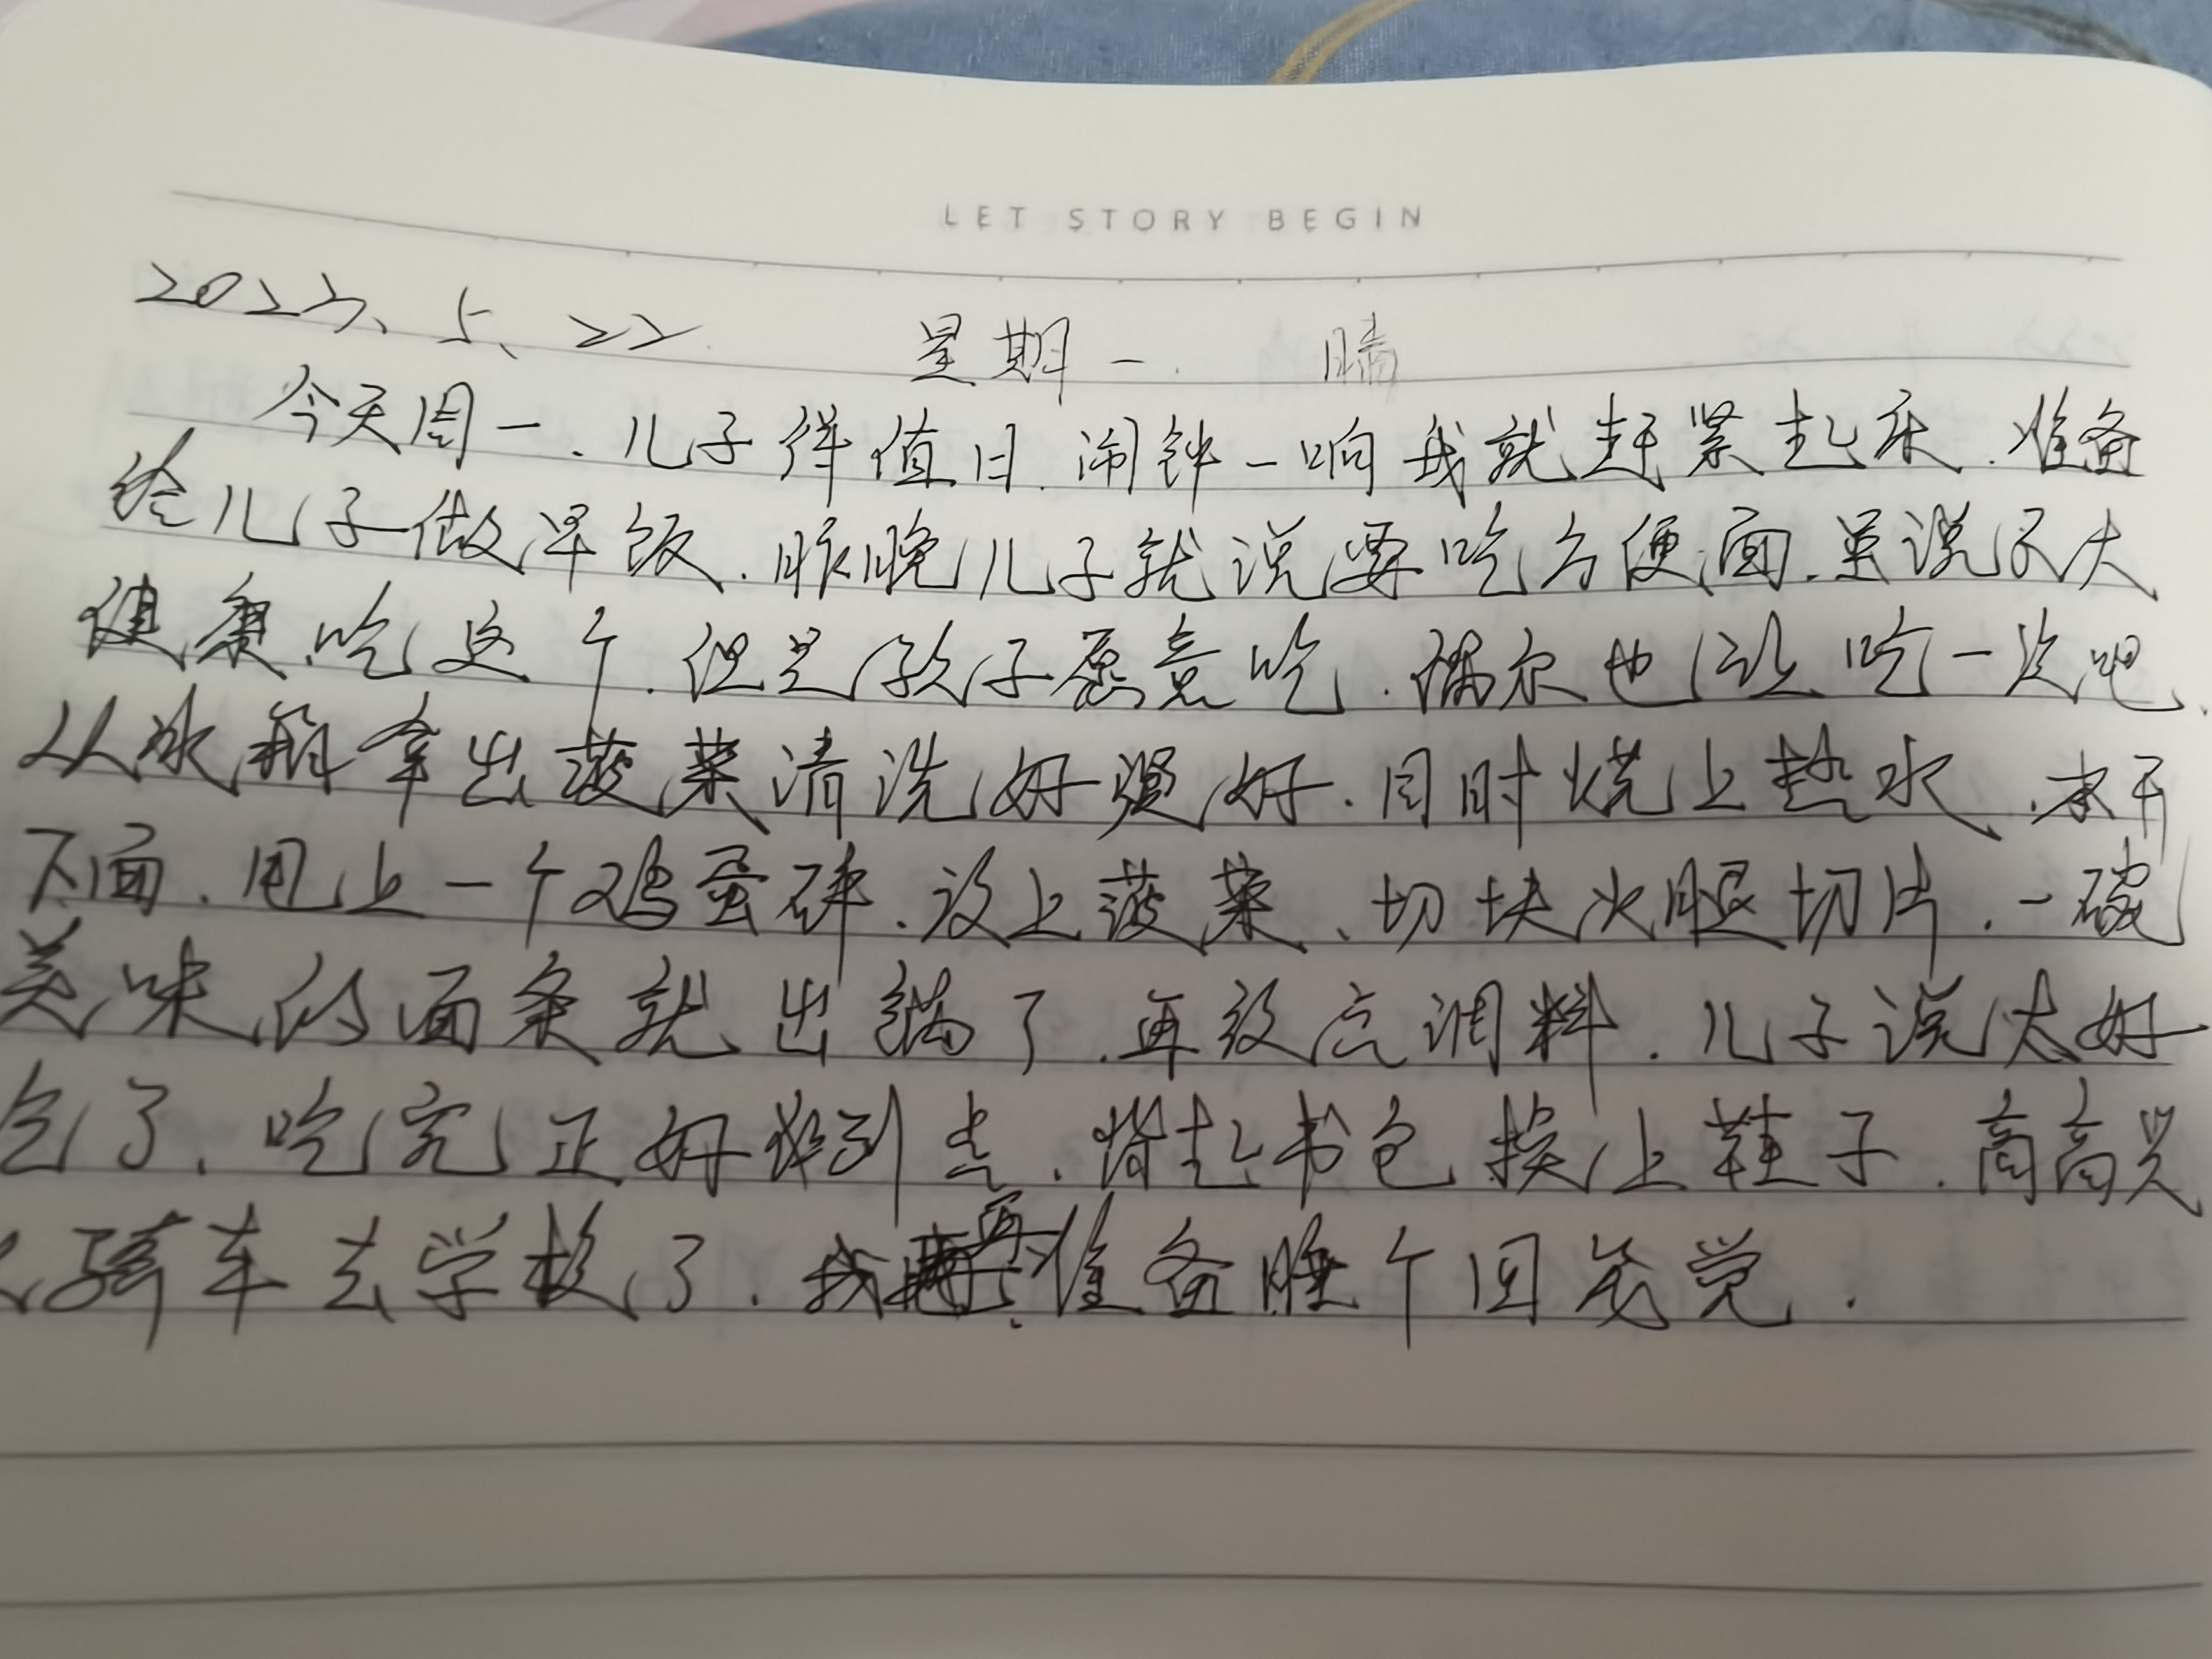 LET STORY BEGIN
2023、5、22 星期一. 晴
今天周一、儿子得值日.闹钟一响我就赶紧起床.准备
给儿子做早饭.昨晚儿子就说要吃方便面.虽说不大
健康.吃这个.但是孩子愿意吃.偶尔也让吃一次吧.
从冰箱拿出菠菜清洗好烫好.同时烧上热水.水开
下面.甩上一个鸡蛋碎.放上菠菜、切块火腿切片.一碗
美味的面条就出锅了.再放点调料.儿子说太好
吃了.吃完正好到点.背起书包换上鞋子.高高兴
骑车去学校了.我再准备睡个回笼觉.